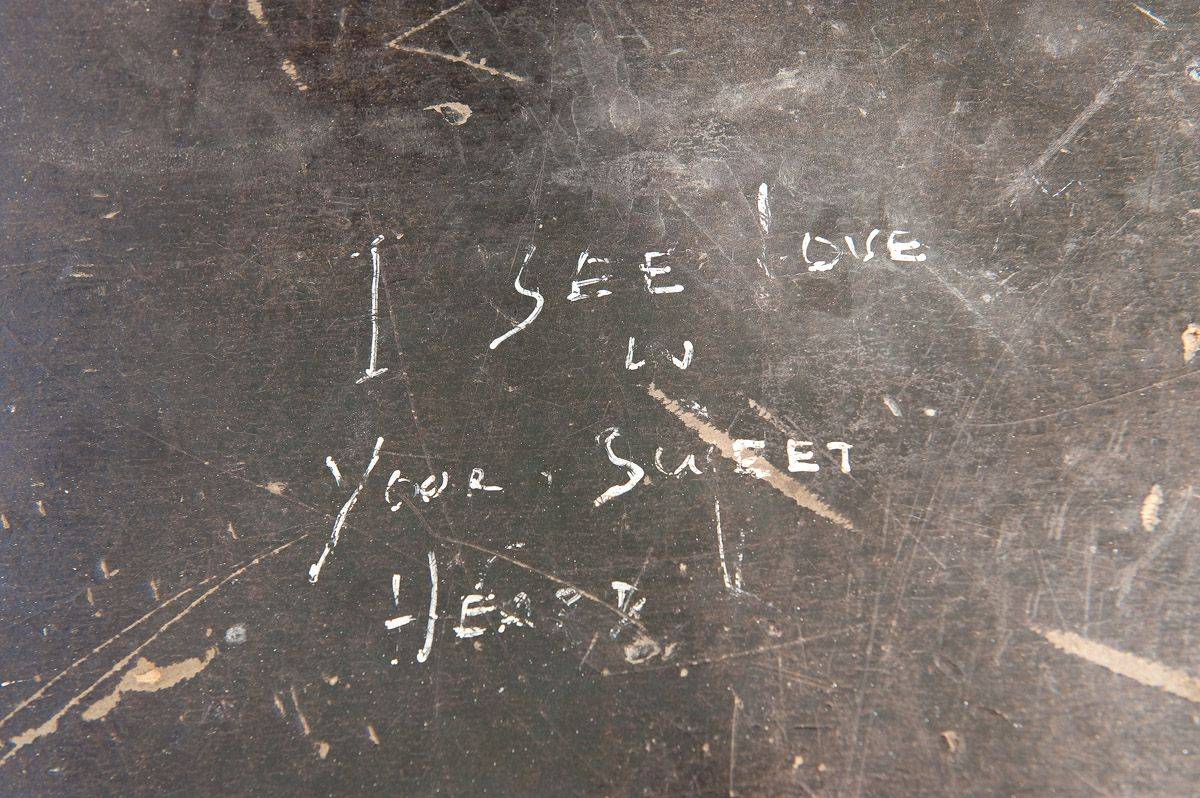 I SEE LOVE
IN
YOUR SWEET
HEART